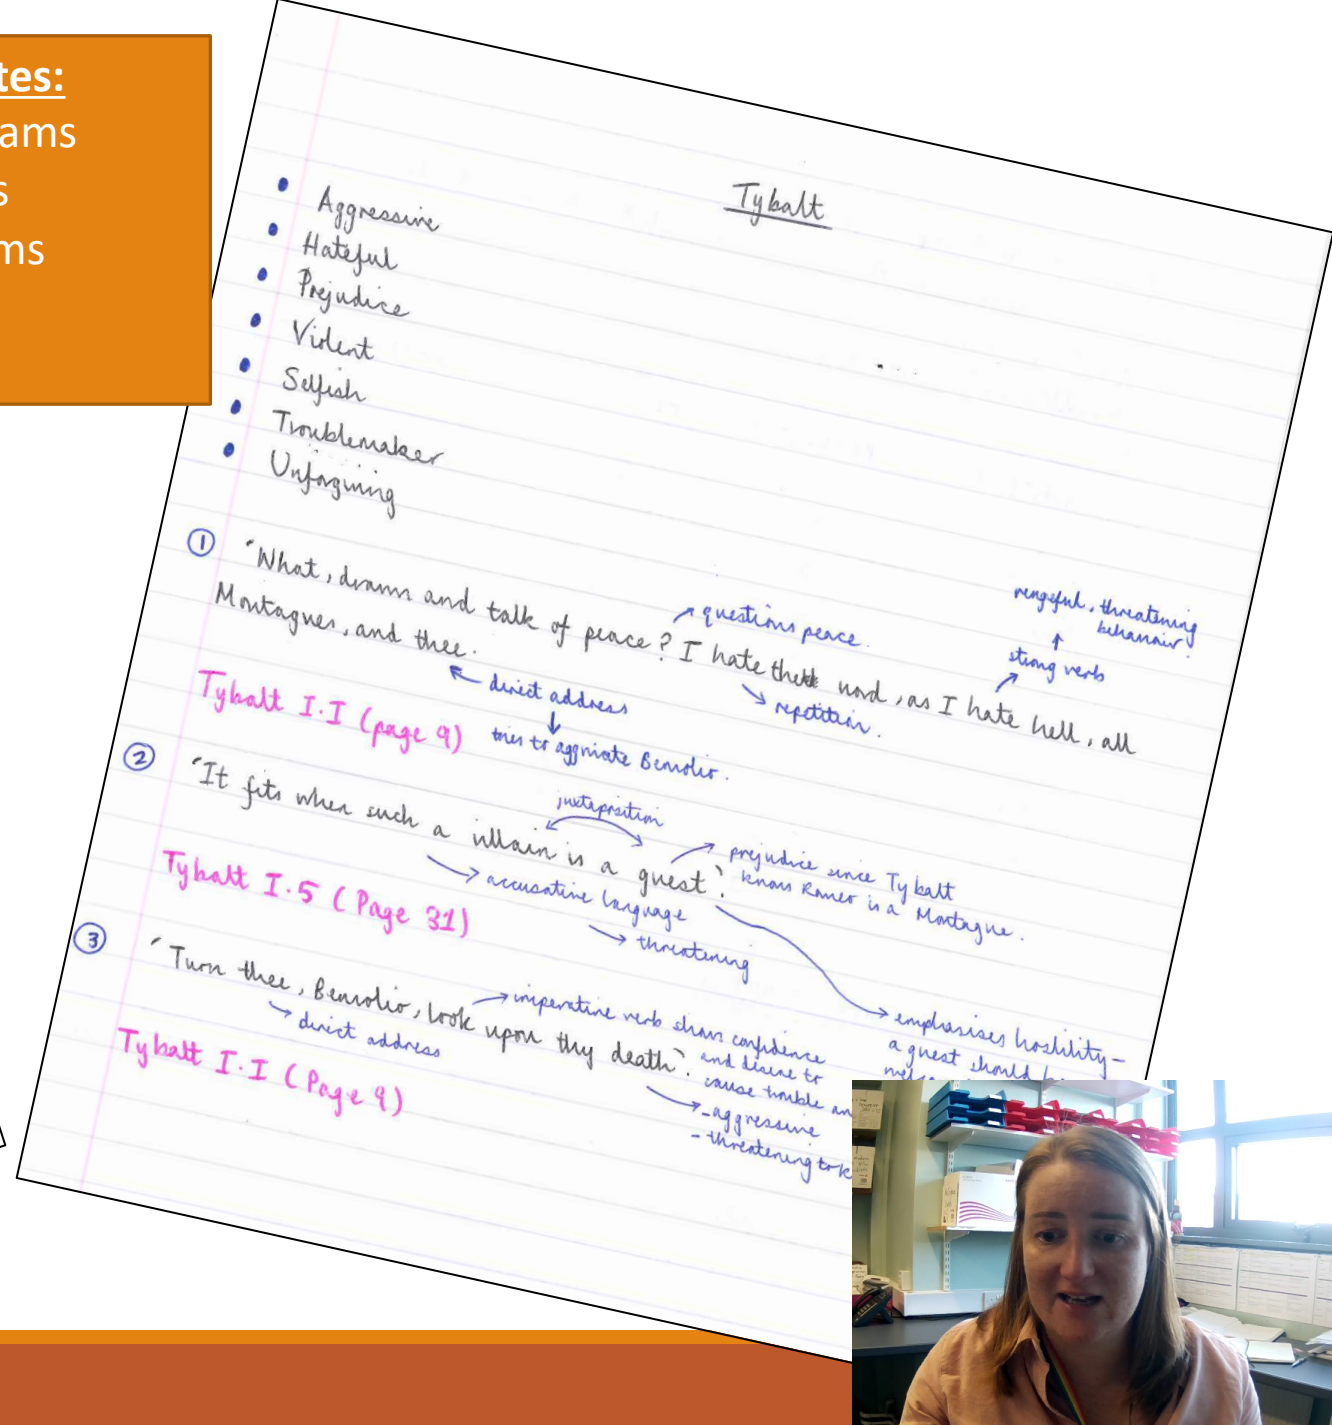 tes:
ams
s
ms
Tybalt
Aggressive
Hateful
Prejudice
Violent
Selfish
Troublemaker
Unforgiving
① "What, drawn and talk of peace? I hate the word, as I hate hell, all
Montagues, and thee.
questions peace.
vengeful, threatening
behaviour.
strong verb
repetition.
direct address
tries to aggravate Benvolio.
Tybalt I.I (page 9)
② "It fits when such a villain is a guest".
juxtaposition
prejudice since Tybalt
knows Romeo is a Montague.
accusative language
threatening
emphasises hostility -
a guest should
Tybalt I.5 (Page 31)
③ "Turn thee, Benvolio, look upon thy death".
direct address
imperative verb shows confidence
and desire to
cause trouble an
- aggressive
- threatening to k
Tybalt I.I (Page 9)